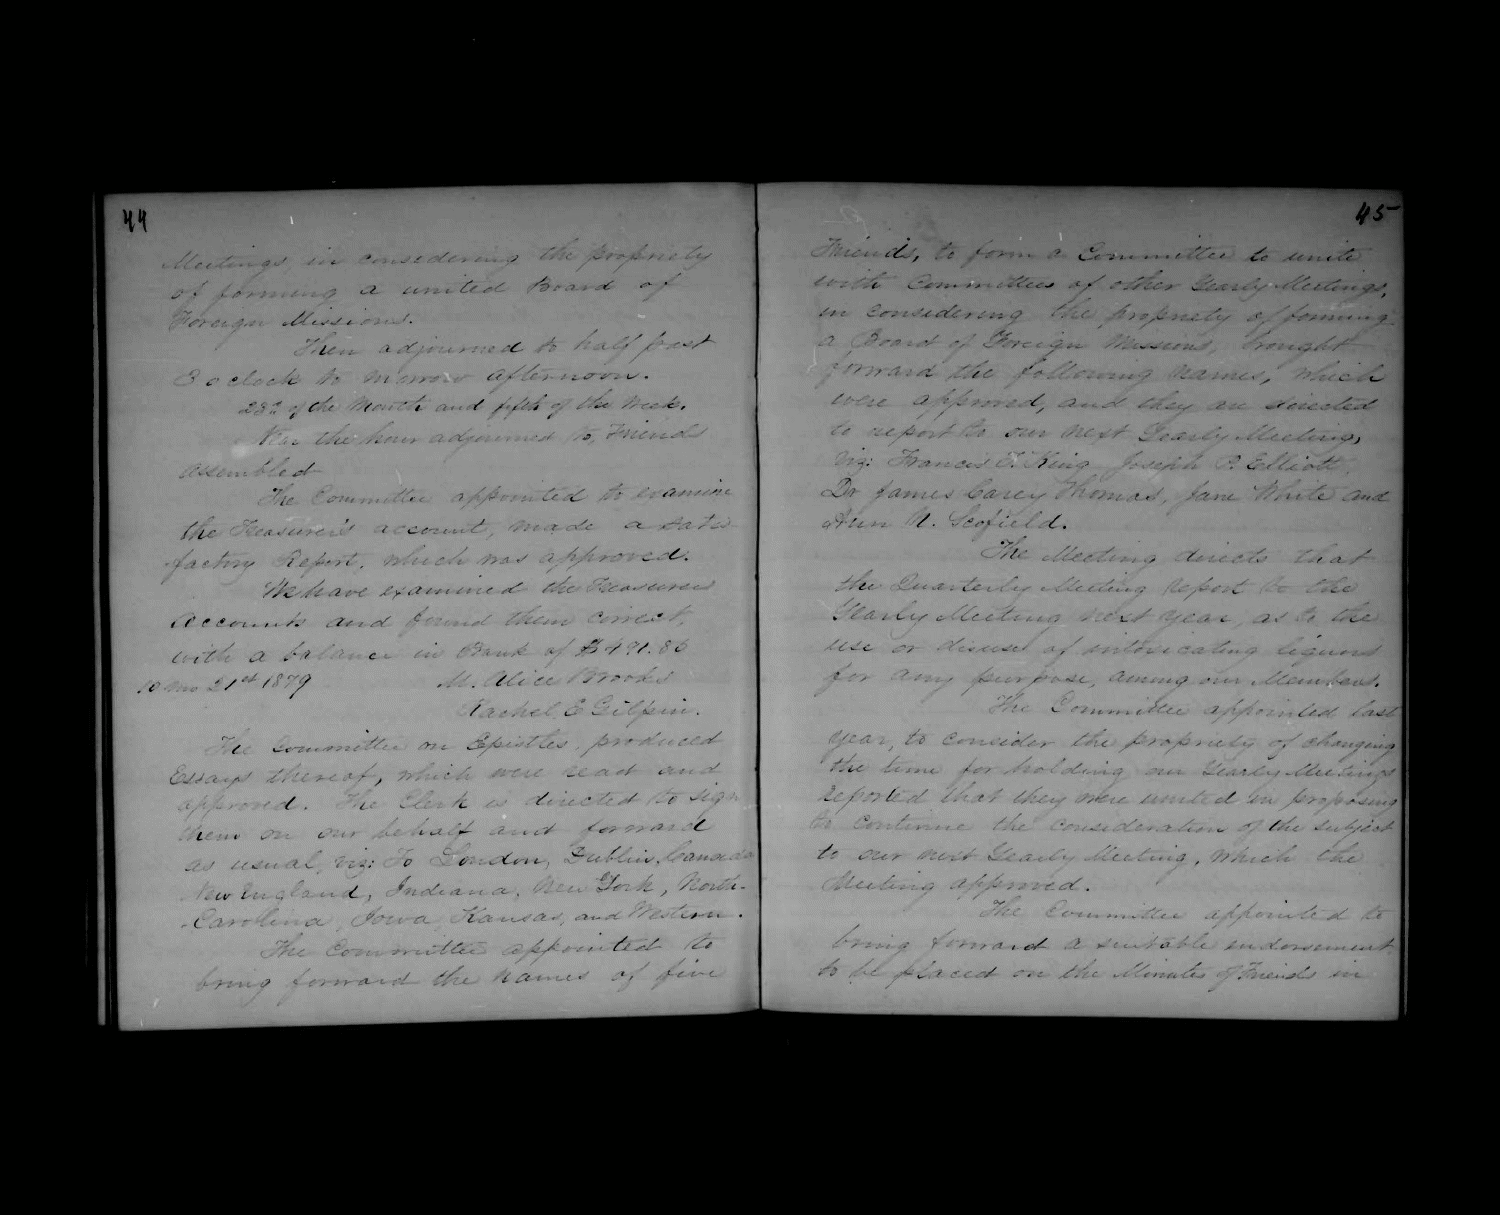 44
Meetings, in considering the propriety
of forming a united Board of
Foreign Missions.
Then adjourned to half past
3 o clock to morrow afternoon.
23d of the Month and fifth of the Week.
Near the hour adjourned to, Friends
assembled
The Committee appointed to examine
the Treasurer's account, made a satis-
factory Report, which was approved.
We have examined the Treasurers
Accounts and found them correct,
with a balance in Bank of $491.86
10 mo 21st 1879 M. Alice Brooks
Rachel E Gilpin.
The Committee on Epistles, produced
Essays thereof, which were read and
approved. The Clerk is directed to sign
them on our behalf and forward
as usual, viz: To London, Dublin, Canada
New England, Indiana, New York, North-
Carolina, Iowa, Kansas, and Western.
The Committee appointed to
bring forward the names of five
45
Friends, to form a Committee to unite
with Committees of other Yearly Meetings,
in considering the propriety of forming
a Board of Foreign Missions, brought
forward the following names, which
were approved, and they are directed
to report to our next Yearly Meeting,
viz: Francis T. King Joseph P. Elliott,
Dr James Carey Thomas, Jane White and
Ann N. Scofield.
The Meeting directs that
the Quarterly Meeting report to the
Yearly Meeting next year, as to the
use or disuse of intoxicating liquors
for any purpose, among our Members.
The Committee appointed last
year, to consider the propriety of changing
the time for holding our Yearly Meetings
reported that they were united in proposing
to continue the consideration of the subject
to our next Yearly Meeting, which the
Meeting approved.
The Committee appointed to
bring forward a suitable endorsement
to be placed on the Minutes of Friends in